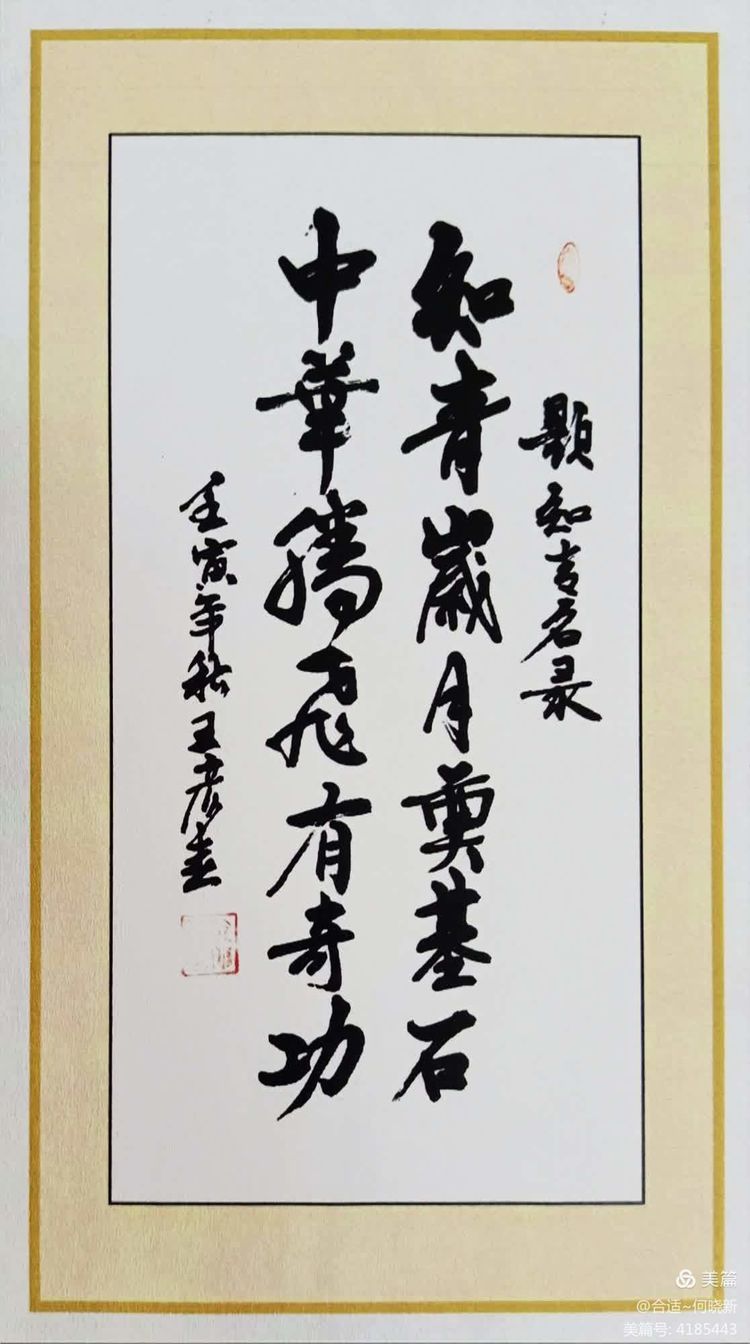 题知青名录
知青歲月奠基石
中華腾飛有奇功
壬寅年秋王彦奎
美篇
@合适~何晓新
美篇号: 4185443